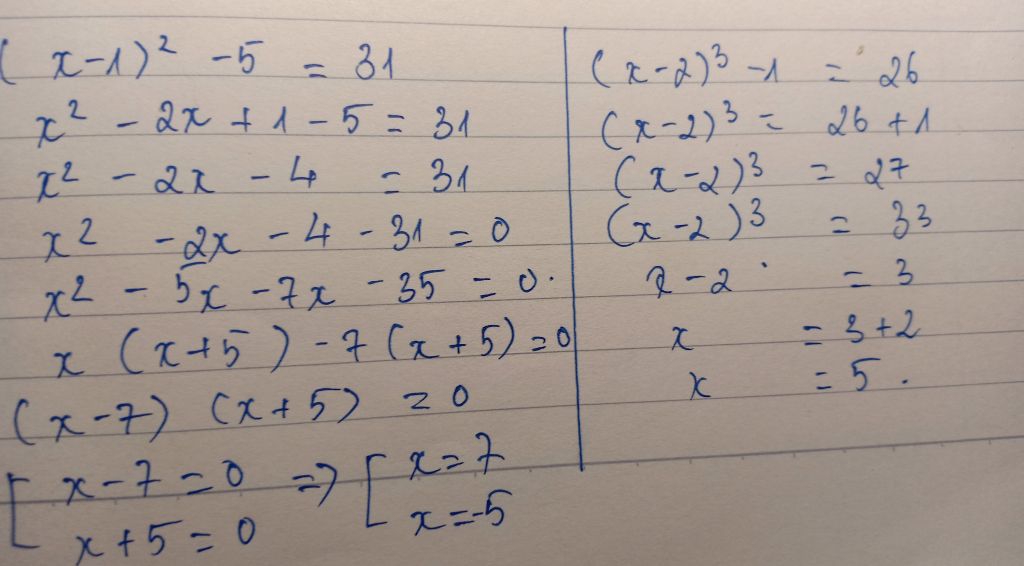 ( x-1)² -5 = 31
x² - 2x + 1 - 5 = 31
x² - 2x - 4 = 31
x² - 2x - 4 - 31 = 0
x² - 5x - 7x - 35 = 0.
x (x+5) - 7 (x+5) = 0
(x-7) (x+5) = 0
[ x-7 = 0 => [ x = 7
x+5 = 0 x = -5
(x-2)³ -1 = 26
(x-2)³ = 26 + 1
(x-2)³ = 27
(x-2)³ = 3³
x-2 = 3
x = 3+2
x = 5.